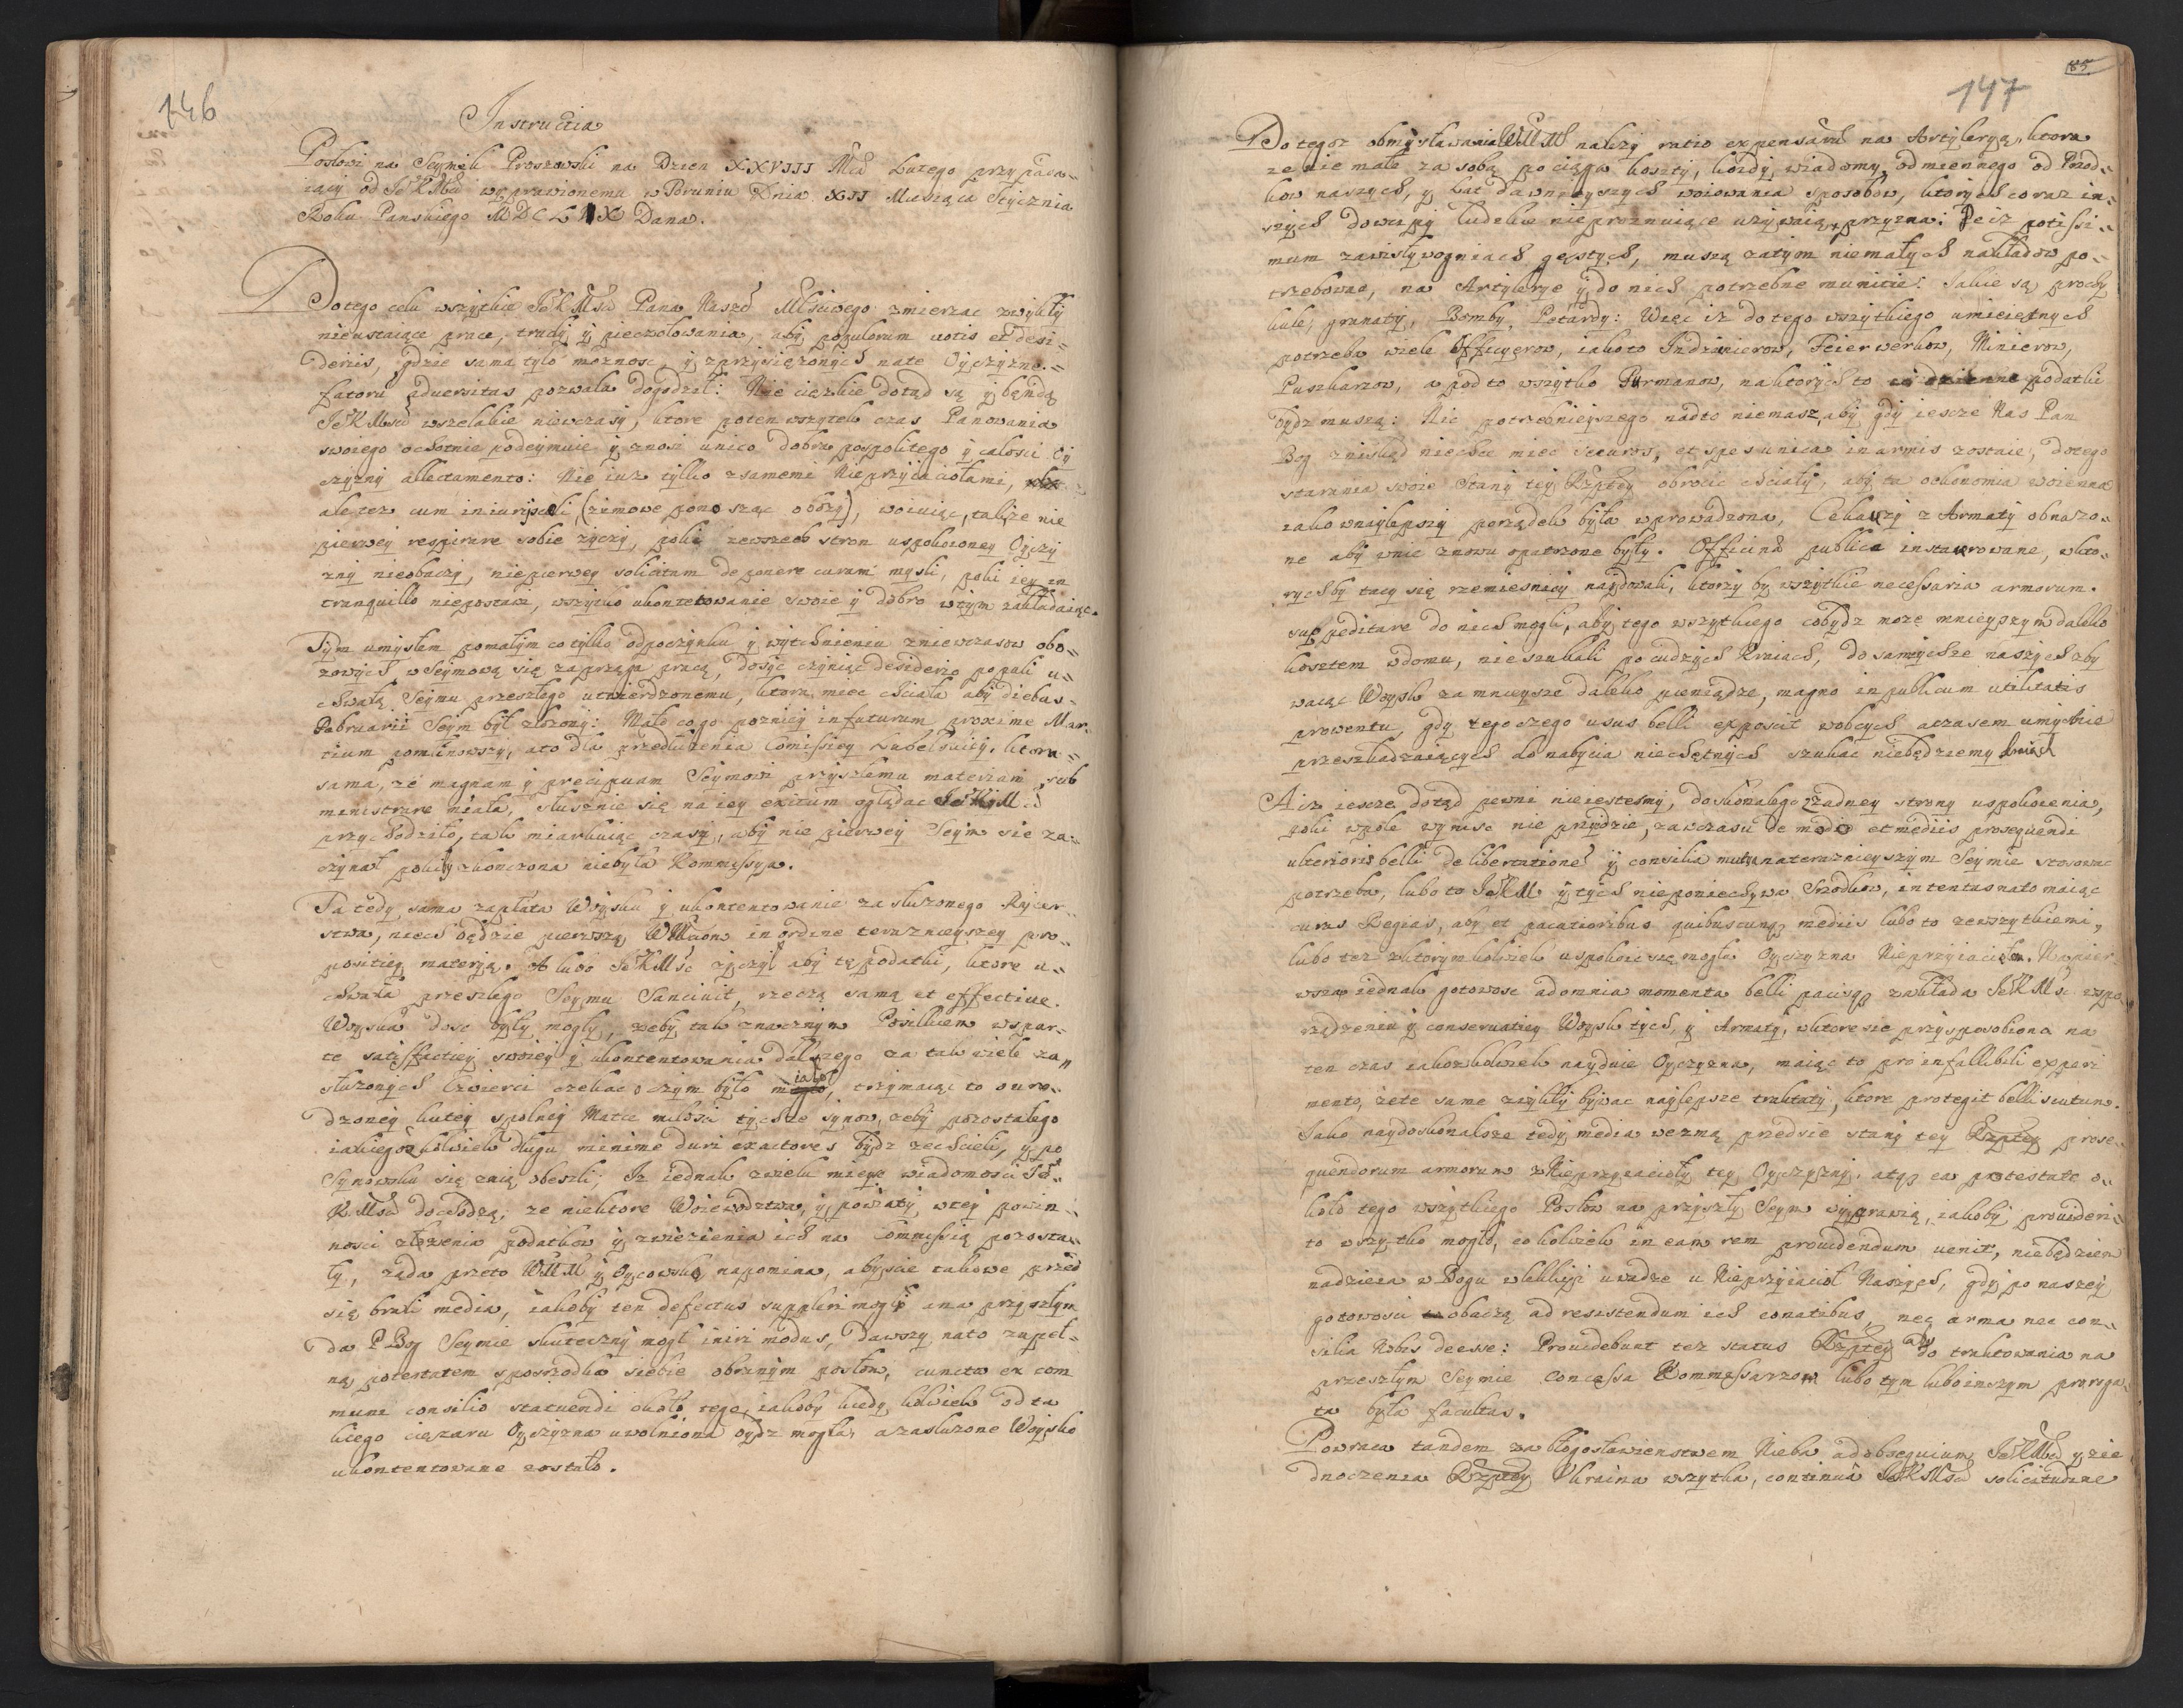 146
Instructia
Posłowi na Seymik Proszowski na Dzien XXVIII Mca Lutego przypada-
iący od JeKMci wyprawionemu w Toruniu Dnia XII Miesiąca Stycznia
Roku Panskiego MDCLIX Dana.
Do tego celu wszytkie JeKMsci Pana Naszo Młsciwego zmierzac zwykły
nieustaiące prace, trudy y pieczołowania, aby populorum votis et desi-
deriis, gdzie sama tylo moznosc, y zaprzysięzonych na te Oyczyzne
fatorū adversitas pozwala dogodzał: Nie cięzkie dotąd są y będą
JeKMsci wszelakie niewczasy, ktore poten wszytek czas Panowania
swoiego ochotnie podeymuie y znosi unico dobra pospolitego y całosci Oy
czyzny allectamento: Nie iuz tylko z samemi Nieprzyiaciołami,
ale tez cum iniurijs cæli (zimowe ponosząc obozy), woiuiąc, takze nie
pierwey respirare sobie zyczy, poki zewszech stron uspokoioney Oyczy
zny nieobaczy, niepierwey solicitam deponere curam mysli, poki iey in
tranquillo niepostawi, wszytko ukontetowanie swoie y dobro w tym zakładaiąc.
Tym umysłem po małym co tylko odpoczynku y wytchnieniu z niewczasow obo-
zowych, w Seymową się zaprząga pracą, dosyc czyniąc desiderio populi u-
chwałą Seymu przeszłego utwierdzonemu, ktora miec chciała aby diebus
Februarii Seym był złozony: Mało co go pozniey in futurum proxime Mar-
tium pominowszy, a to dla przedłuzenia Comissiey Lubelskiey, ktora
sama, ze magnam y precipuam Seymowi przyszłemu materiam sub
ministrare miała, słusznie się na iey exitum oglądac JeKMci
przychodziło, tak miarkuiąc czasy, aby nie pierwey Seym się za-
czynał pokiby skonczona niebyła Kommissya.
Ta tedy sama zapłata Woysku y ukontentowanie zasłuzonego Rycer-
stwa, niech będzie pierwszą WMciow in ordine teraznieyszey pro-
positiey materyą. A lubo JeKMsc zyczył aby tę podatki, ktore u-
chwała przeszłego Seymu Sancivit, rzeczą samą et effective
Woysku dosc były mogły, zeby tak znacznym Posiłkiem wspar-
te satisfactiey swoiey y ukontentowania dalszego za tak wiele za-
słuzonych Cwierci czekac o czym było iakoz, trzymaiąc to o uro-
dzoney kutey spolney Matce miłosci tychze synow, zeby pozostałego
iakiegoz kolwiek długu minime duri exactores bydz zechcieli, y po
Synowsku się znią obeszli; Iz iednak z wielu mieysc wiadomosci Je
KMsci dochodzą, ze niektore Woiewodztwa, y powiaty, w tey powin-
nosci złozenia podatkow y zwiezienia ich na Commissią pozosta-
ły, ząda przeto WMM y Oycowsko napomina, abyscie takowe przed
się brali media, iakoby ten defectus suppleri mogł a na przyszłym
da P. Bog Seymie skuteczny mogł iniri modus, dawszy na to zupeł-
ną potestatem zposrzodku siebie obranym posłom, cuncta ex com
muni consilio statuendi około tego, iakoby kiedy kolwiek od ta
kiego cięzaru Oyczyzna uwolniona bydz mogła, a zasłuzone Woysko
ukontentowane zostało.
85
147
Do tegoz obmyslawania WMM nalezy ratio expensarū na Artyleryą, ktora
ze nie małe za sobą pociąga koszty, kozdy wiadomy odmiennego od Przod-
kow naszych, y Lat dawnieyszych woiowania sposobow, ktorych co raz in-
szych dowcipy ludzkie nieproznuiące uzywaią, przyzna: Te iz potissi-
mum zawisły w ogniach gęstych, muszą zatym niemałych nakładow po-
trzebowac, na Artylerye y do nich potrzebne munitie: Jakie są prochy
kule, granaty, Bomby, Petardy: Więc iz do tego wszytkiego umieiętnych
potrzeba wiele Officyerow, iako to Indzinierow, Feierwerkow, Minierow,
Puszkarzow, a pod to wszytko Furmanow, na ktorych to podatki
bydz muszą: Nic potrzebnieyszego nadto niemasz, aby gdy iescze Nas Pan
Bog znikąd niechce miec securos, et spes unica in armis zostaie, do tego
starania swoie Stany tey Rzptey obrocic chciały, aby ta oekonomia woienna
iako w naylepszy porządek była wprowadzona, Cekauzy z Armaty obnazo-
ne aby w nie znowu opatrzone były. Officinæ publicæ instaurowane, w kto-
rychby tacy się rzemiesnicy naydowali, ktorzy by wszytkie necessaria armorum
suppeditare do nich mogli, aby tego wszytkiego co bydz moze mnieyszym daleko
kosztem w domu, nieszukali po cudzych Kraiach, do samychze naszych zby
waiąc Woysk za mnieysze daleko pieniądze, magno in publicum utilitatis
proventu, gdy tego czego usus belli exposcit w obcych a czasem umyslnie
przeszkadzaiących do nabycia niechętnych szukac niebędziemy kraiach
A iz iescze dotąd pewni niejestesmy, doskonałego z zadney strony uspokoienia,
poki w pole wynisc nie przyidzie, zawczasu de modo et mediis prosequendi
ulterioris belli deliberationes y consilia mutua na teraznieyszym Seymie stosowac
potrzeba, lubo to JeKM y tych nieponiechywa Srzodkow, intentas na to maiąc
curas Regias, aby et pacatioribus quibuscunq mediis lubo to zewszytkiemi,
lubo tez z ktorymkolwiek uspokoic się mogła Oyczyzna Nieprzyiacielem. Napier-
wsza iednak gotowosc ad omnia momenta belli pacisq zakłada JeKMsc wspo
rządzeniu y conservatiey Woysk tych, y Armaty, w ktore sie przysposobiona na
ten czas iakozkolwiek nayduie Oyczyzna, maiąc to pro infallibili experi
mento, zete same zwykły bywac naylepsze traktaty, ktore protegit belli scutum.
Jako naydoskonalsze tedy media wezmą przedsie stany tey Rzptey prose-
quendorum armorum z Nieprzyiacioły tey Oyczyzny, atq ea potestate o-
koło tego wszytkiego Posłow na przyszły Seym wyprawią, iakoby provideri
to wszytko mogło, cokolwiek in eam rem providendum venit, niebędziem
nadzieia w Bogu w lekkiey uwadze u Nieprzyiacioł Naszych, gdy po naszey
gotowosci obaczą ad resistendum ich conatibus, nec arma nec con-
silia Nobis deesse: Providebunt tez status Rzptey aby do traktowania na
przeszłym Seymie concessa Kommessarzom lubo tym lubo inszym proroga-
ta była facultas.
Powraca tandem za błogosławienstwem Nieba ad obsequium JeKMci y zie
dnoczenia Rzptey Ukraina wszytka, continuâ JeKMsci solicitudine